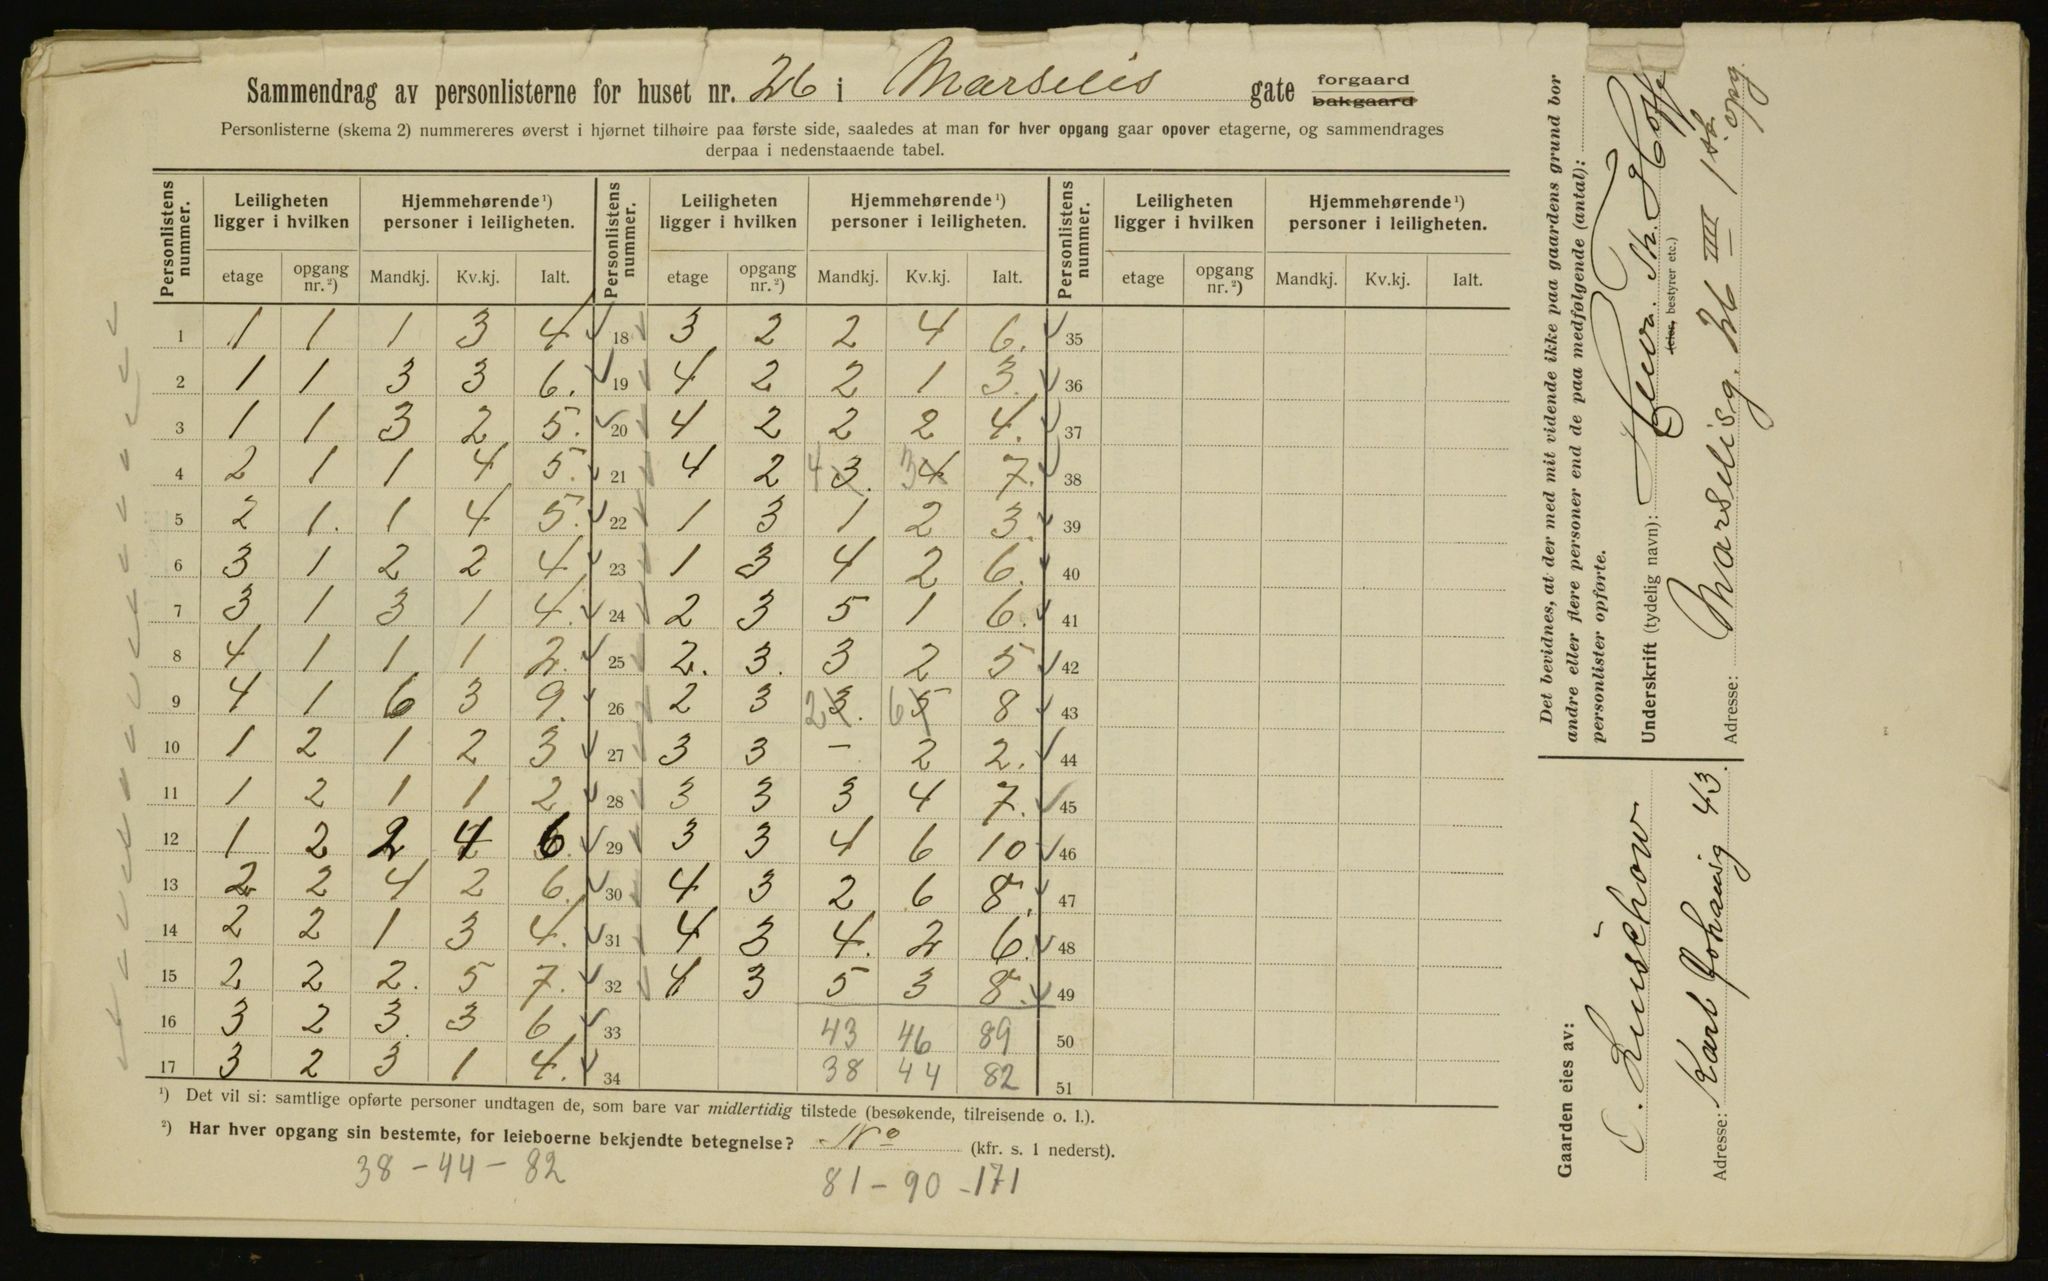 Sammendrag av personlisterne for huset nr. 26 i Marselis gate forgaard bakgaard
Personlisterne (skema 2) nummereres øverst i hjørnet tilhøire paa første side, saaledes at man for hver opgang gaar opover etagerne, og sammendrages
derpaa i nedenstaaende tabel.
Personlistens nummer. Leiligheten ligger i hvilken Hjemmehørende ¹) personer i leiligheten. Personlistens nummer. Leiligheten ligger i hvilken Hjemmehørende ¹) personer i leiligheten. Personlistens nummer. Leiligheten ligger i hvilken Hjemmehørende ¹) personer i leiligheten.
etage opgang nr. ²) Mandkj. Kv.kj. Ialt. etage opgang nr. ²) Mandkj. Kv.kj. Ialt. etage opgang nr. ²) Mandkj. Kv.kj. Ialt.
1 1 1 1 3 4 18 3 2 2 4 6. 35
2 1 1 3 3 6. 19 4 2 2 1 3 36
3 1 1 3 2 5. 20 4 2 2 2 4. 37
4 2 1 1 4 5. 21 4 2 4 3. 3 4 7. 38
5 2 1. 1 4 5. 22 1 3 1 2 3. 39
6 3 1 2 2 4. 23 1 3 4 2 6. 40
7 3 1 3 1 4. 24 2 3 5 1 6. 41
8 4 1 1 1 2. 25 2. 3. 3 2 5 42
9 4 1 6 3 9. 26 2 3 2 3. 6 5 8 43
10 1 2 1 2 3 27 3 3 - 2 2. 44
11 1 2 1 1 2 28 3 3 3 4 7. 45
12 1 2 2 4 6 29 3 3 4 6 10 46
13 2 2 4 2 6. 30 4 3 2 6 8. 47
14 2 2 1 3 4. 31 4 3 4. 2 6. 48
15 2 2 2. 5 7. 32 4 3 5 3 8. 49
16 3 2 3. 3 6 33 43 46 89 50
17 3 2 3 1 4. 34 38 44 82 51
¹) Det vil si: samtlige opførte personer undtagen de, som bare var midlertidig tilstede (besøkende, tilreisende o. l.).
²) Har hver opgang sin bestemte, for leieboerne bekjendte betegnelse? No (kfr. s. 1 nederst).
38 - 44 - 82
81 - 90 - 171
Det bevidnes, at der med mit vidende ikke paa gaardens grund bor
andre eller flere personer end de paa medfølgende (antal):
personlister opførte.
Underskrift (tydelig navn): Th. Hoff
(eier, bestyrer etc.)
Adresse: Marselisg. 26 IIII 1ste opg.
Gaarden eies av:
C. Lüschow
Adresse: Karl Johansg 43.